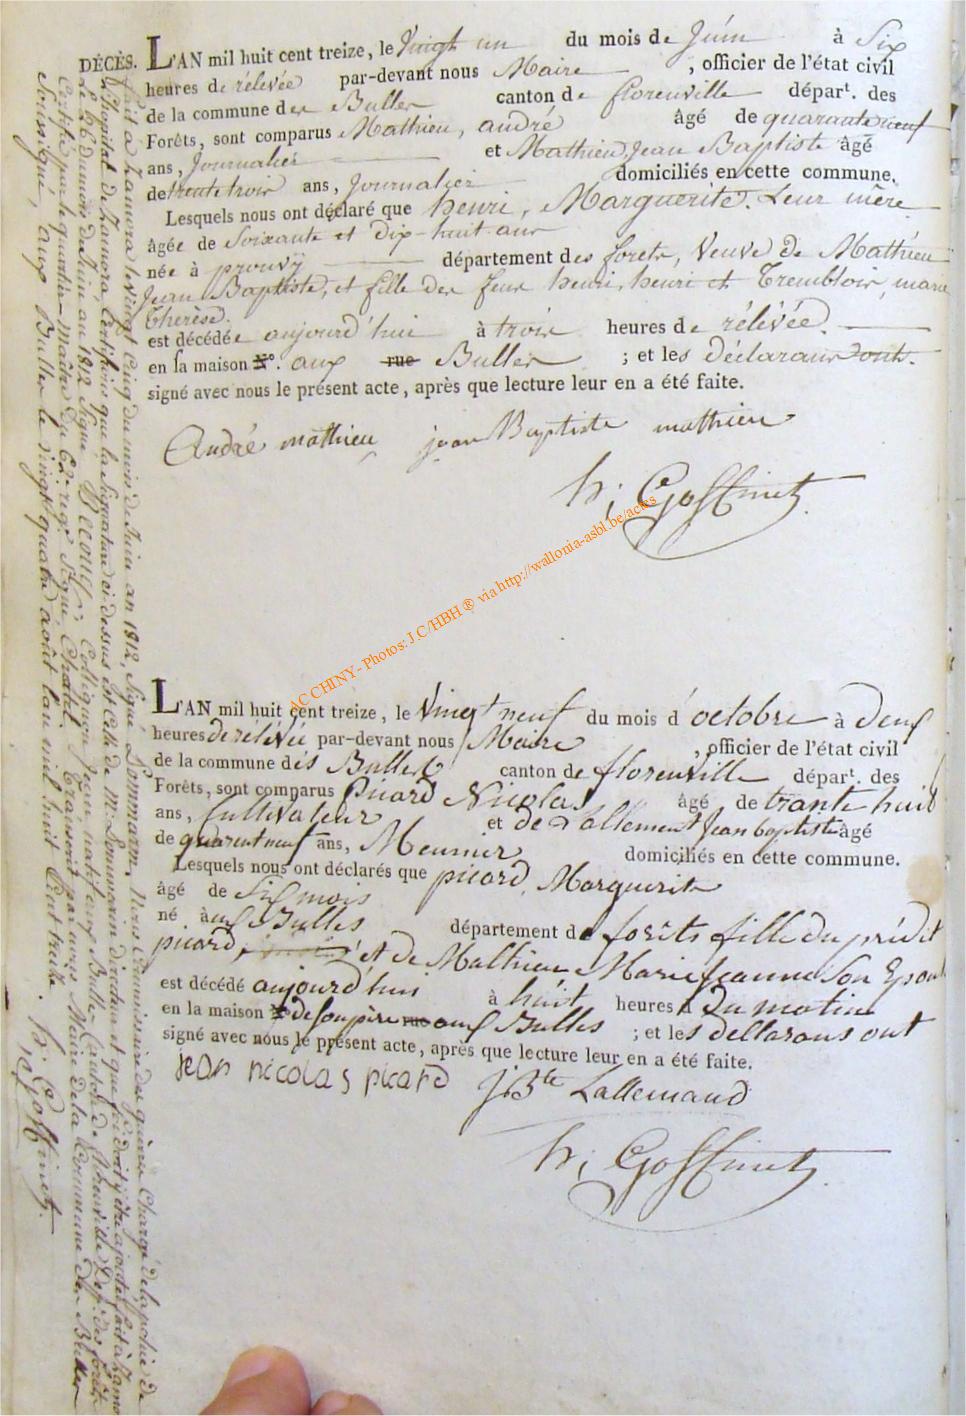 DÉCÈS. L'AN mil huit cent treize, le Vingt un du mois de Juin à Six
heures de rélévée par-devant nous Maire, officier de l'état civil
de la commune des Bulles canton de florenville départ. des
Forêts, sont comparus Mathieu, andré âgé de quarante neuf
ans, Journalier et Mathieu, Jean Baptiste âgé
de trente trois ans, Journalier domiciliés en cette commune.
Lesquels nous ont déclaré que henri, Marguerite. Leur mère
âgée de Soixante et dix-huit ans
née à prouvÿ département des forets, Veuve de Mathieu
Jean Baptiste, et fille des feus henri, henri et Trembloir, marie
Therèse.
est décédée aujourd'hui à trois heures de rélévée.
en sa maison N°. aux rue Bulles ; et les déclarans ont
signé avec nous le présent acte, après que lecture leur en a été faite.
André mathieu jean Baptiste mathieu
h; Goffinet
AC CHINY - Photos: J.C/HBH ® via http://wallonia-asbl.be/actes
L'AN mil huit cent treize, le Vingt neuf du mois d'octobre à deux
heures de rélévée par-devant nous Maire, officier de l'état civil
de la commune des Bulles canton de florenville départ. des
Forêts, sont comparus Picard Nicolas âgé de trante huit
ans, Cultivateur et de Lallement Jean baptiste âgé
de quarent neuf ans, Meunier domiciliés en cette commune.
Lesquels nous ont déclarés que picard, Marguerite
âgé de Six mois
né aux Bulles département de forêts fille du prédit
picard, et de Mathieu Marie Jeanne Son Epouse
est décédé aujourd'hui à huit heures du matin
en la maison N° de son père rue aux Bulles ; et les déllarans ont
signé avec nous le présent acte, après que lecture leur en a été faite.
jean nicolas picard J. Bte Lallemand
h; Goffinet
fait à Zamora le Vingt Cinq du mois de Juin an 1812, Signé Commissaire des guerres Chargé de la police de
L'hopital de Zamora, Certifions que la Signature ci-dessus est Celle de Mr. directeur et que foi doit y être ajoutée fait à Zamora
Le 26 du mois de Juin an 1812 Signé Collignon Jean, natif aux Bulles Canton de Dept. des forêts
Certifié par le quartier-maître du 62e. reg. Signé Transcrit par nous Maire de la Commune des Bulles
Soussigné, aux Bulles le vingt quatre août l'an mil huit Cent treize. h; Goffinet.